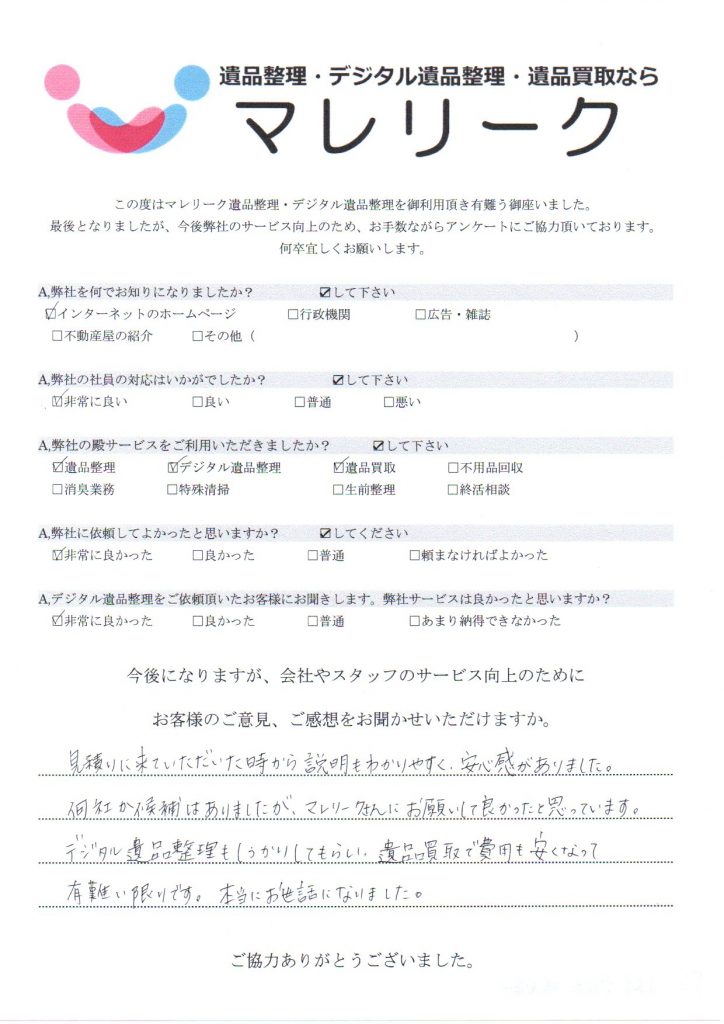 遺品整理・デジタル遺品整理・遺品買取なら
マレリーク
この度はマレリーク遺品整理・デジタル遺品整理を御利用頂き有難う御座いました。
最後となりましたが、今後弊社のサービス向上のため、お手数ながらアンケートにご協力頂いております。
何卒宜しくお願いします。
A,弊社を何でお知りになりましたか？ ☑して下さい
☑インターネットのホームページ □行政機関 □広告・雑誌
□不動産屋の紹介 □その他（ ）
A,弊社の社員の対応はいかがでしたか？ ☑して下さい
☑非常に良い □良い □普通 □悪い
A,弊社の殿サービスをご利用いただきましたか？ ☑して下さい
☑遺品整理 ☑デジタル遺品整理 ☑遺品買取 □不用品回収
□消臭業務 □特殊清掃 □生前整理 □終活相談
A,弊社に依頼してよかったと思いますか？ ☑してください
☑非常に良かった □良かった □普通 □頼まなければよかった
A,デジタル遺品整理をご依頼頂いたお客様にお聞きします。弊社サービスは良かったと思いますか？
☑非常に良かった □良かった □普通 □あまり納得できなかった
今後になりますが、会社やスタッフのサービス向上のために
お客様のご意見、ご感想をお聞かせいただけますか。
見積りに来ていただいた時から説明もわかりやすく、安心感がありました。
何社か候補はありましたが、マレリークさんにお願いして良かったと思っています。
デジタル遺品整理もしっかりしてもらい、遺品買取で費用も安くなって
有難い限りです。本当にお世話になりました。
ご協力ありがとうございました。